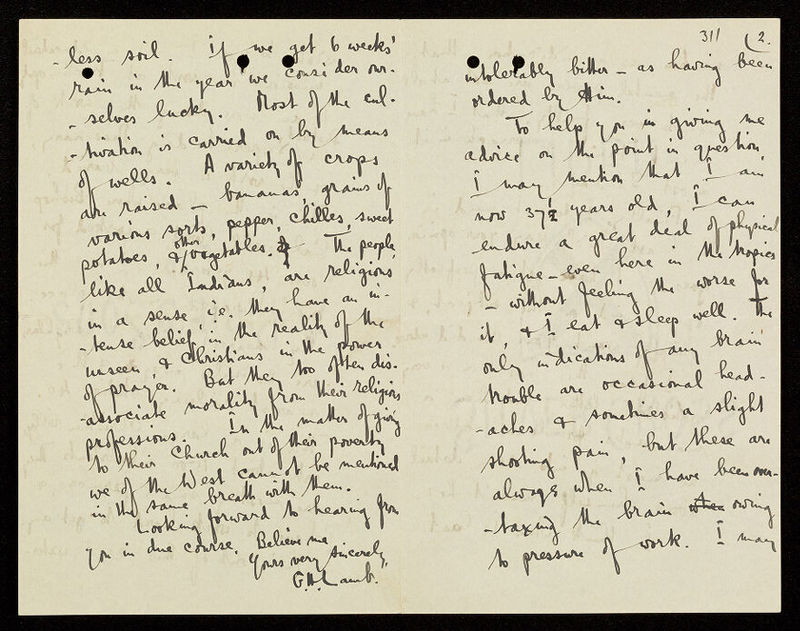 -less soil. If we get 6 weeks'
rain in the year we consider our-
-selves lucky. Most of the cul-
-tivation is carried on by means
of wells. A variety of crops
are raised — bananas, grains of
various sorts, pepper, chillies, sweet
potatoes, & other vegetables. The people,
like all Indians, are religious
in a sense, i.e. they have an in-
-tense belief in the reality of the
unseen, & Christians in the power
of prayer. But they too often dis-
-associate morality from their religious
professions. In the matter of giving
to their Church out of their poverty
we of the West cannot be mentioned
in the same breath with them.
Looking forward to hearing from
you in due course, Believe me
Yours very sincerely,
G.H. Lamb.
311 (2.
intolerably bitter — as having been
ordered by Him.
To help you in giving me
advice on the point in question,
I may mention that I am
now 37½ years old, I can
endure a great deal of physical
fatigue — even here in the tropics
— without feeling the worse for
it, & I eat & sleep well. The
only indications of any brain
trouble are occasional head-
-aches & sometimes a slight
shooting pain, but these are
always when I have been over-
-taxing the brain when owing
to pressure of work. I may